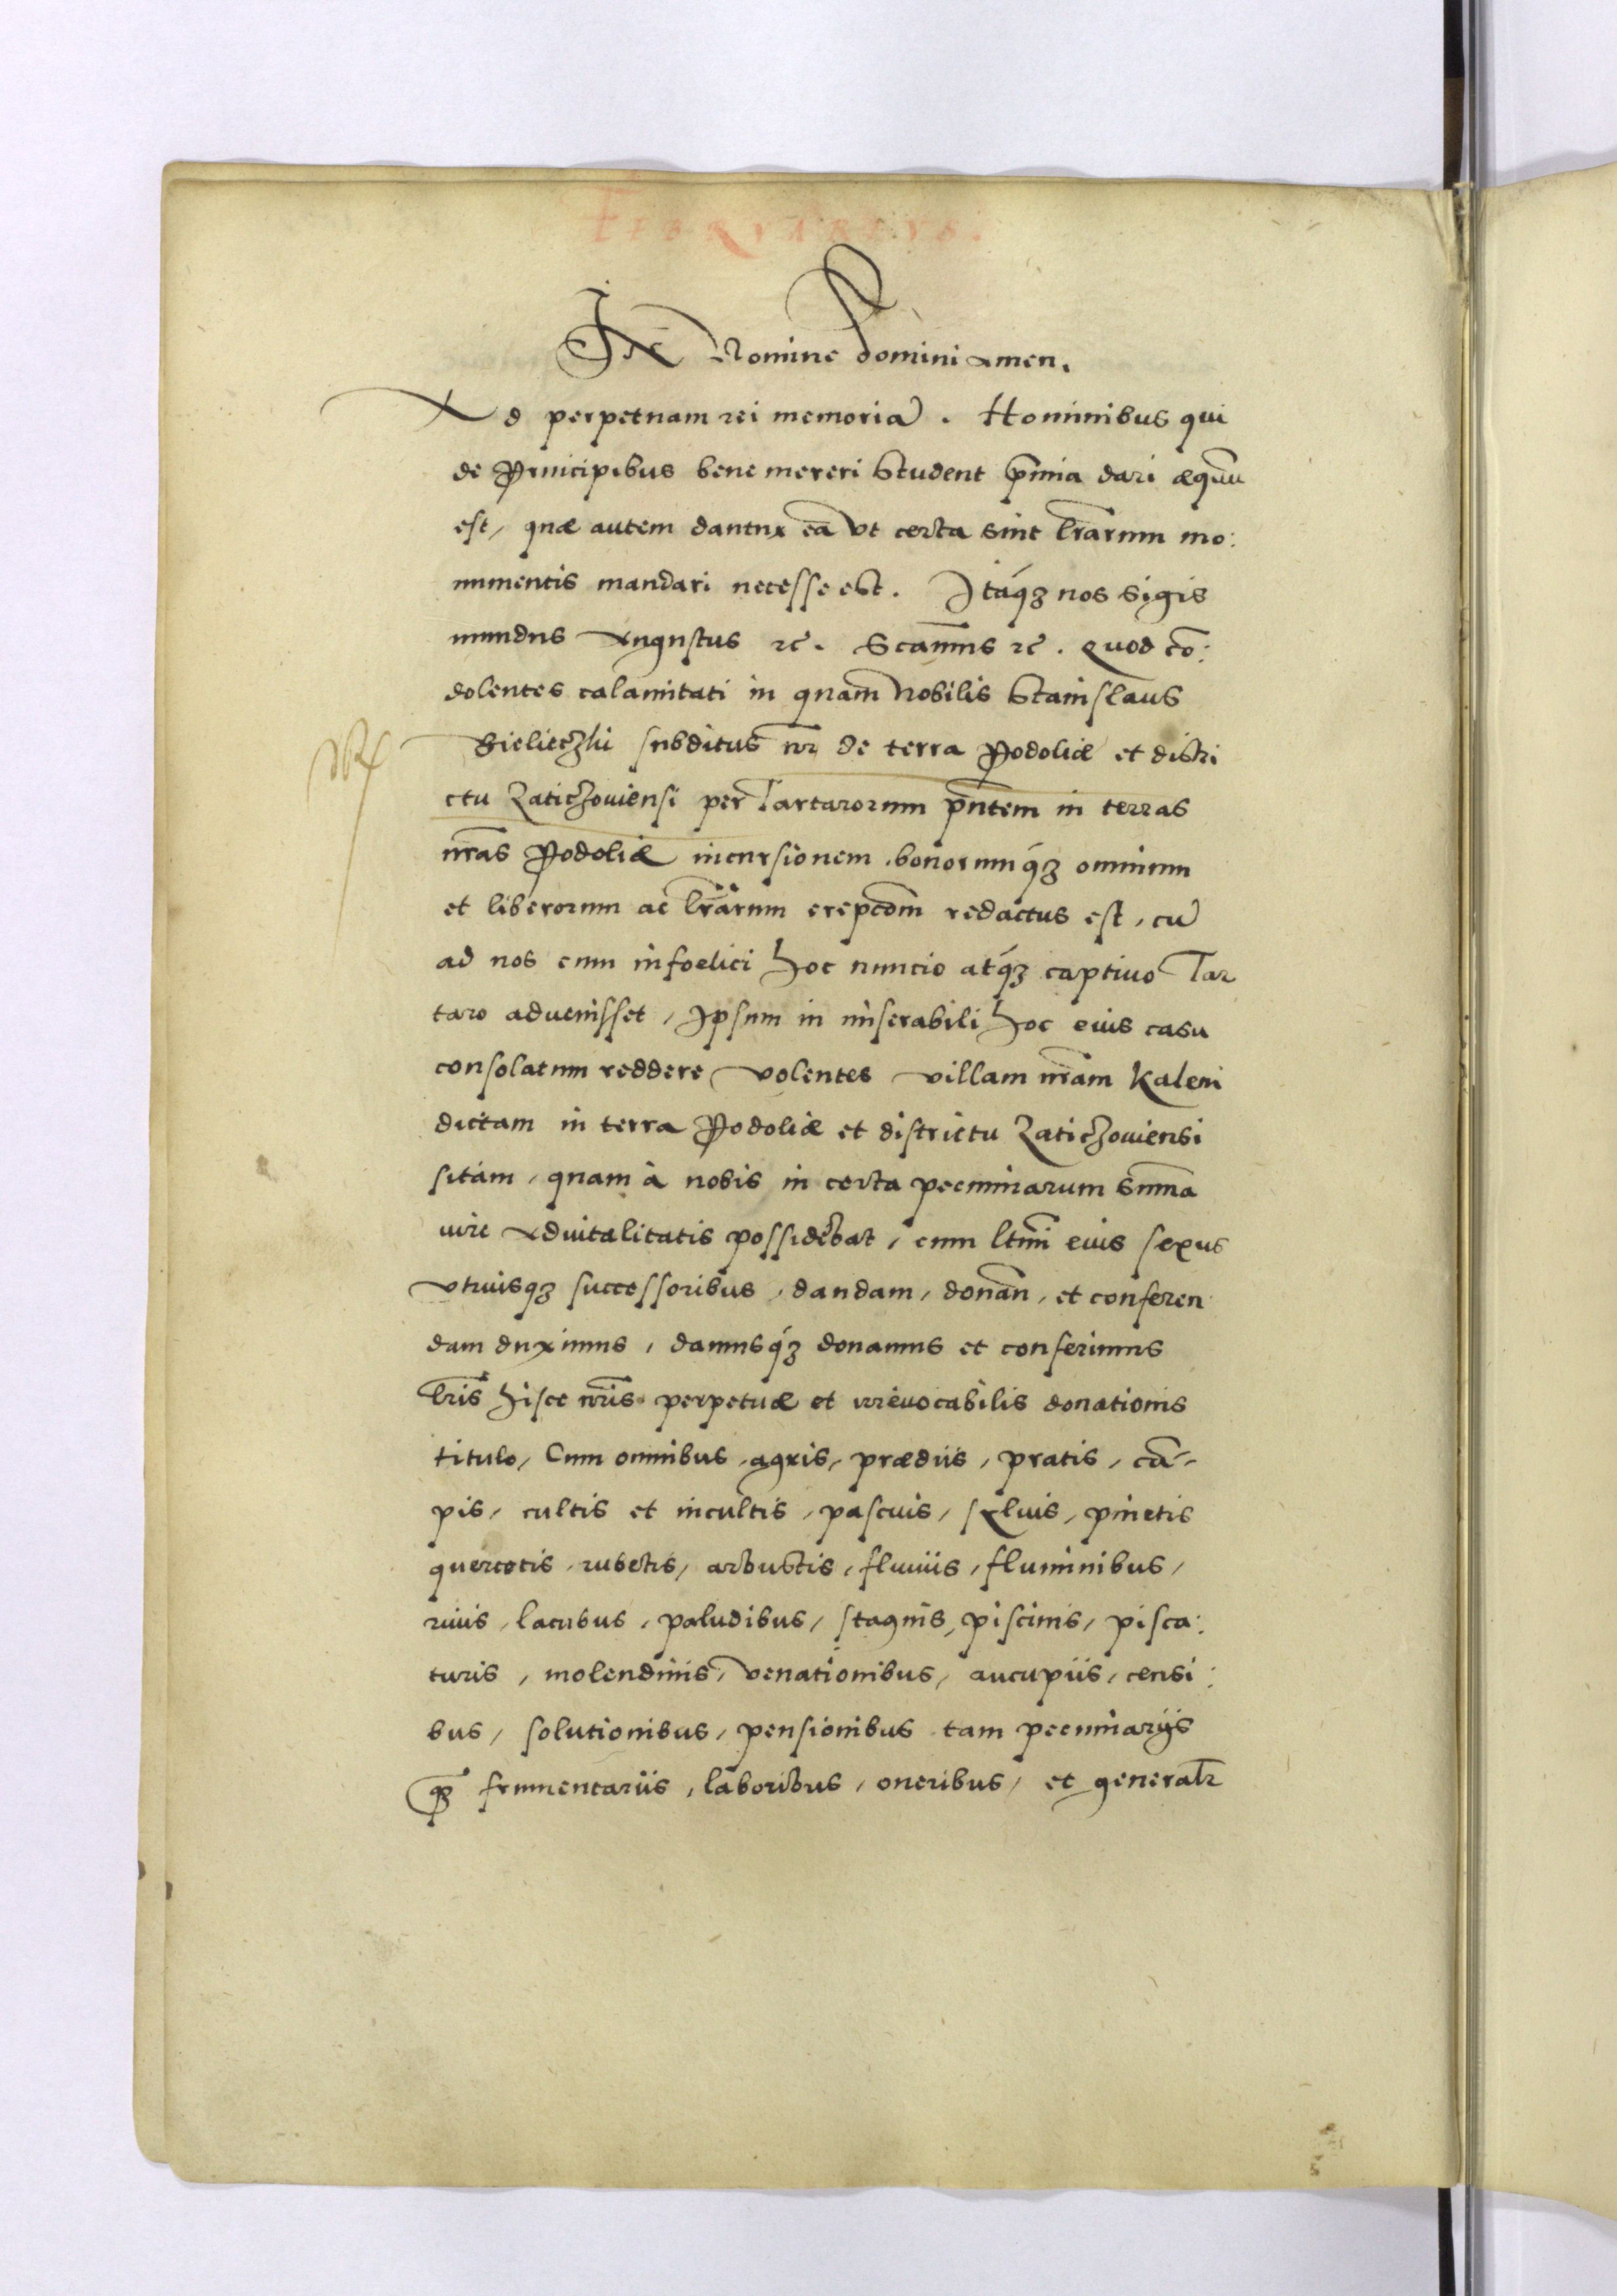 FEBRVARIVS.
In Nomine Domini Amen.
Ad perpetuam rei memoriã. Hominibus qui
de Principibus bene mereri student p̃mia dari æquũ
est, quæ autem dantur eã vt certa sint l̃rarum mo:
numentis mandari necesse est. Itáqꝫ nos Sigis
mundus Augustus ꝛc̃. Scamus ꝛc̃. Quod cõ:
dolentes calamitati in quam Nobilis Stanislaus
Sielieczki subditus nr̃ de terra Podoliæ et distri
ctu Laticzouiensi per Tartarorum p̃ntem in terras
nr̃as Podoliæ incursionem bonorumq́ꝫ omnium
et liberorum ac l̃rarum erepcõm redactus est, cũ
ad nos cum infoelici hoc nuncio atq́ꝫ captiuo Tar
taro aduenisset, Ipsum in miserabili hoc eius casu
consolatum reddere volentes villam nr̃am Kaleni
dictam in terra Podoliæ et districtu Laticzouiensi
sitam, quam à nobis in certa pecuniarum sum̃a
iure Aduitalitatis possidebat, cum lt̃mi eius sexus
vtriusqꝫ successoribus, dandam, donañ, et conferen
dam duximus, damusq́ꝫ donamus et conferimus
l̃ris hisce nr̃is perpetuæ et irreuocabilis donationis
titulo, Cum omnibus, agris, prædiis, pratis, cã-
pis, cultis et incultis, pascuis, syluis, pinetis
quercetis, rubetis, arbustis, fluuiis, fluminibus,
riuis, lacubus, paludibus, stagnis, piscinis, pisca:
turis, molendinis, venationibus, aucupiis, censi:
bus, solutionibus, pensionibus tam pecuniarijs
q̃ꝫ frumentariis, laboribus, oneribus, et generalr̃